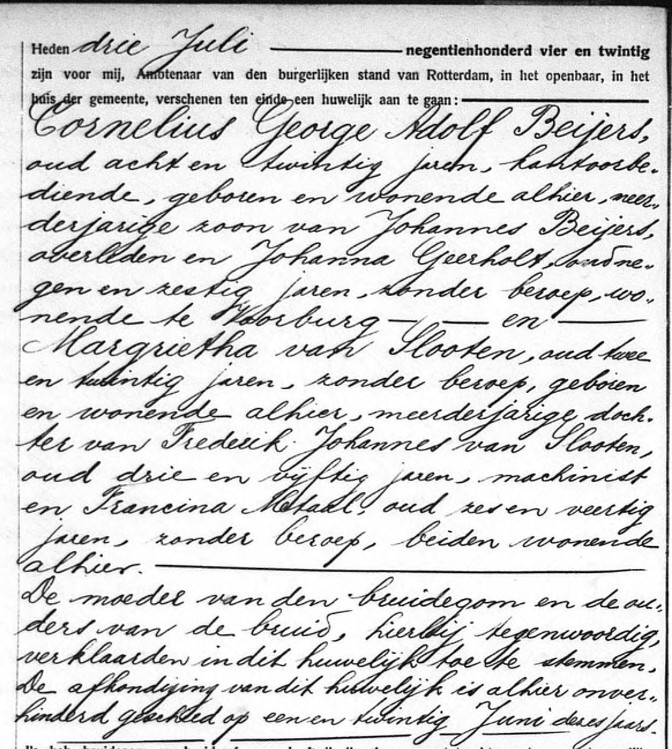 Heden drie Juli negentienhonderd vier en twintig
zijn voor mij, Ambtenaar van den burgerlijken stand van Rotterdam, in het openbaar, in het
huis der gemeente, verschenen ten einde een huwelijk aan te gaan:
Cornelius George Adolf Beijers,
oud acht en twintig jaren, kantoorbe-
diende, geboren en wonende alhier, meer-
derjarige zoon van Johannes Beijers,
overleden en Johanna Geerholt, oud ne-
gen en zestig jaren, zonder beroep, wo-
nende te Voorburg — — en —
Margrietha van Slooten, oud twee
en twintig jaren, zonder beroep, geboren
en wonende alhier, meerderjarige doch-
ter van Frederik Johannes van Slooten,
oud drie en vijftig jaren, machinist
en Francina Metaal, oud zes en veertig
jaren, zonder beroep, beiden wonende
alhier.
De moeder van den bruidegom en de ou-
ders van de bruid, hierbij tegenwoordig,
verklaarden in dit huwelijk toe te stemmen.
De afkondiging van dit huwelijk is alhier onver-
hinderd geschied op een en twintig Juni dezes jaars.